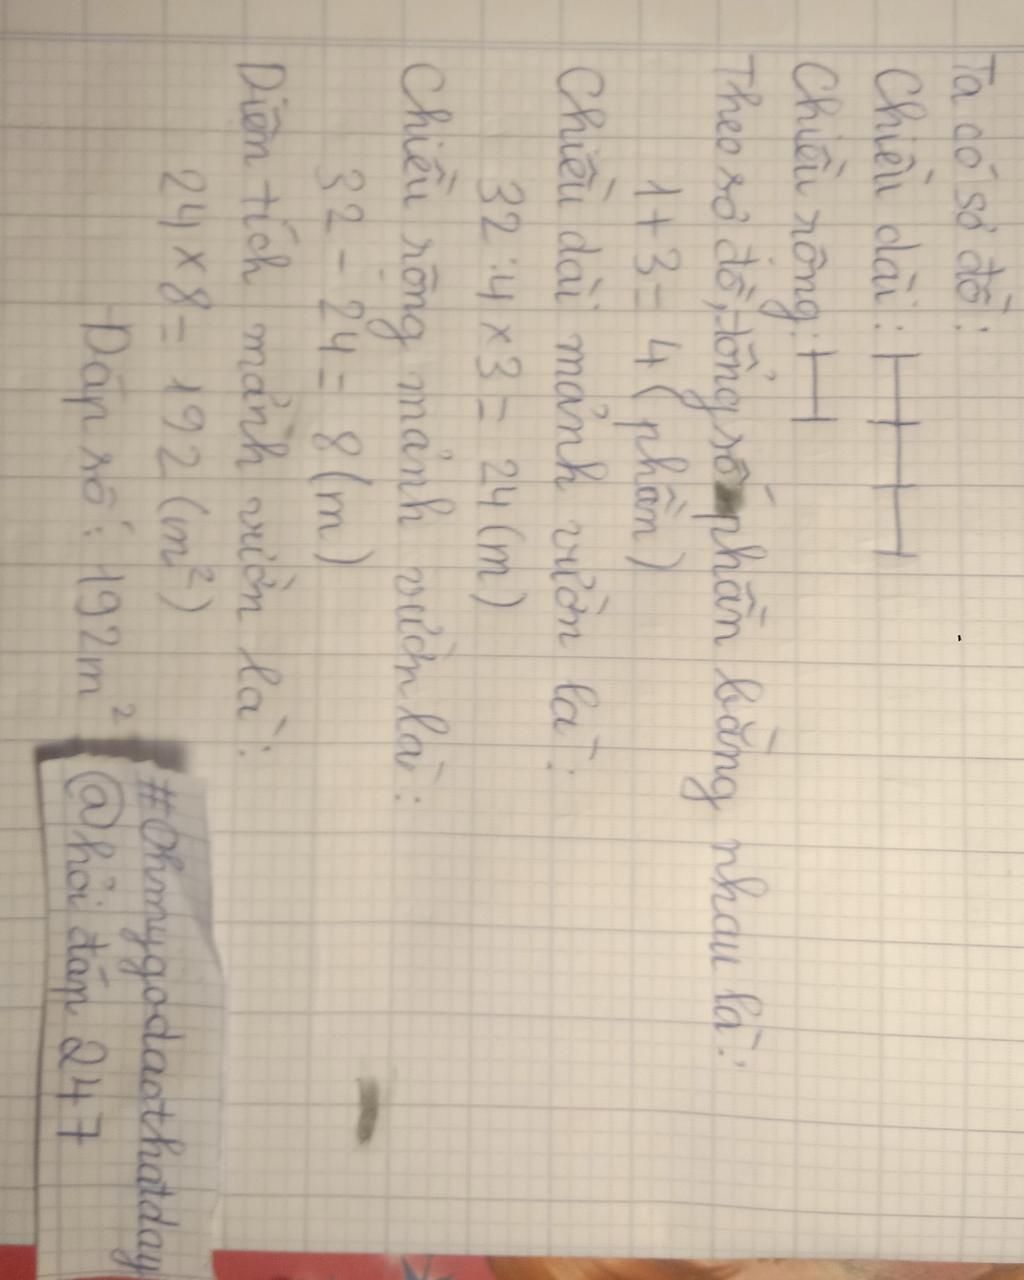 Ta có sơ đồ:
Chiều dài:
Chiều rộng:
Theo sơ đồ, tổng số phần bằng nhau là:
1 + 3 = 4 (phần)
Chiều dài mảnh vườn là:
32 : 4 x 3 = 24 (m)
Chiều rộng mảnh vườn là:
32 - 24 = 8 (m)
Diện tích mảnh vườn là:
24 x 8 = 192 (m²)
Đáp số: 192m²
#Ohmygodaothatday
@hỏi đáp 247